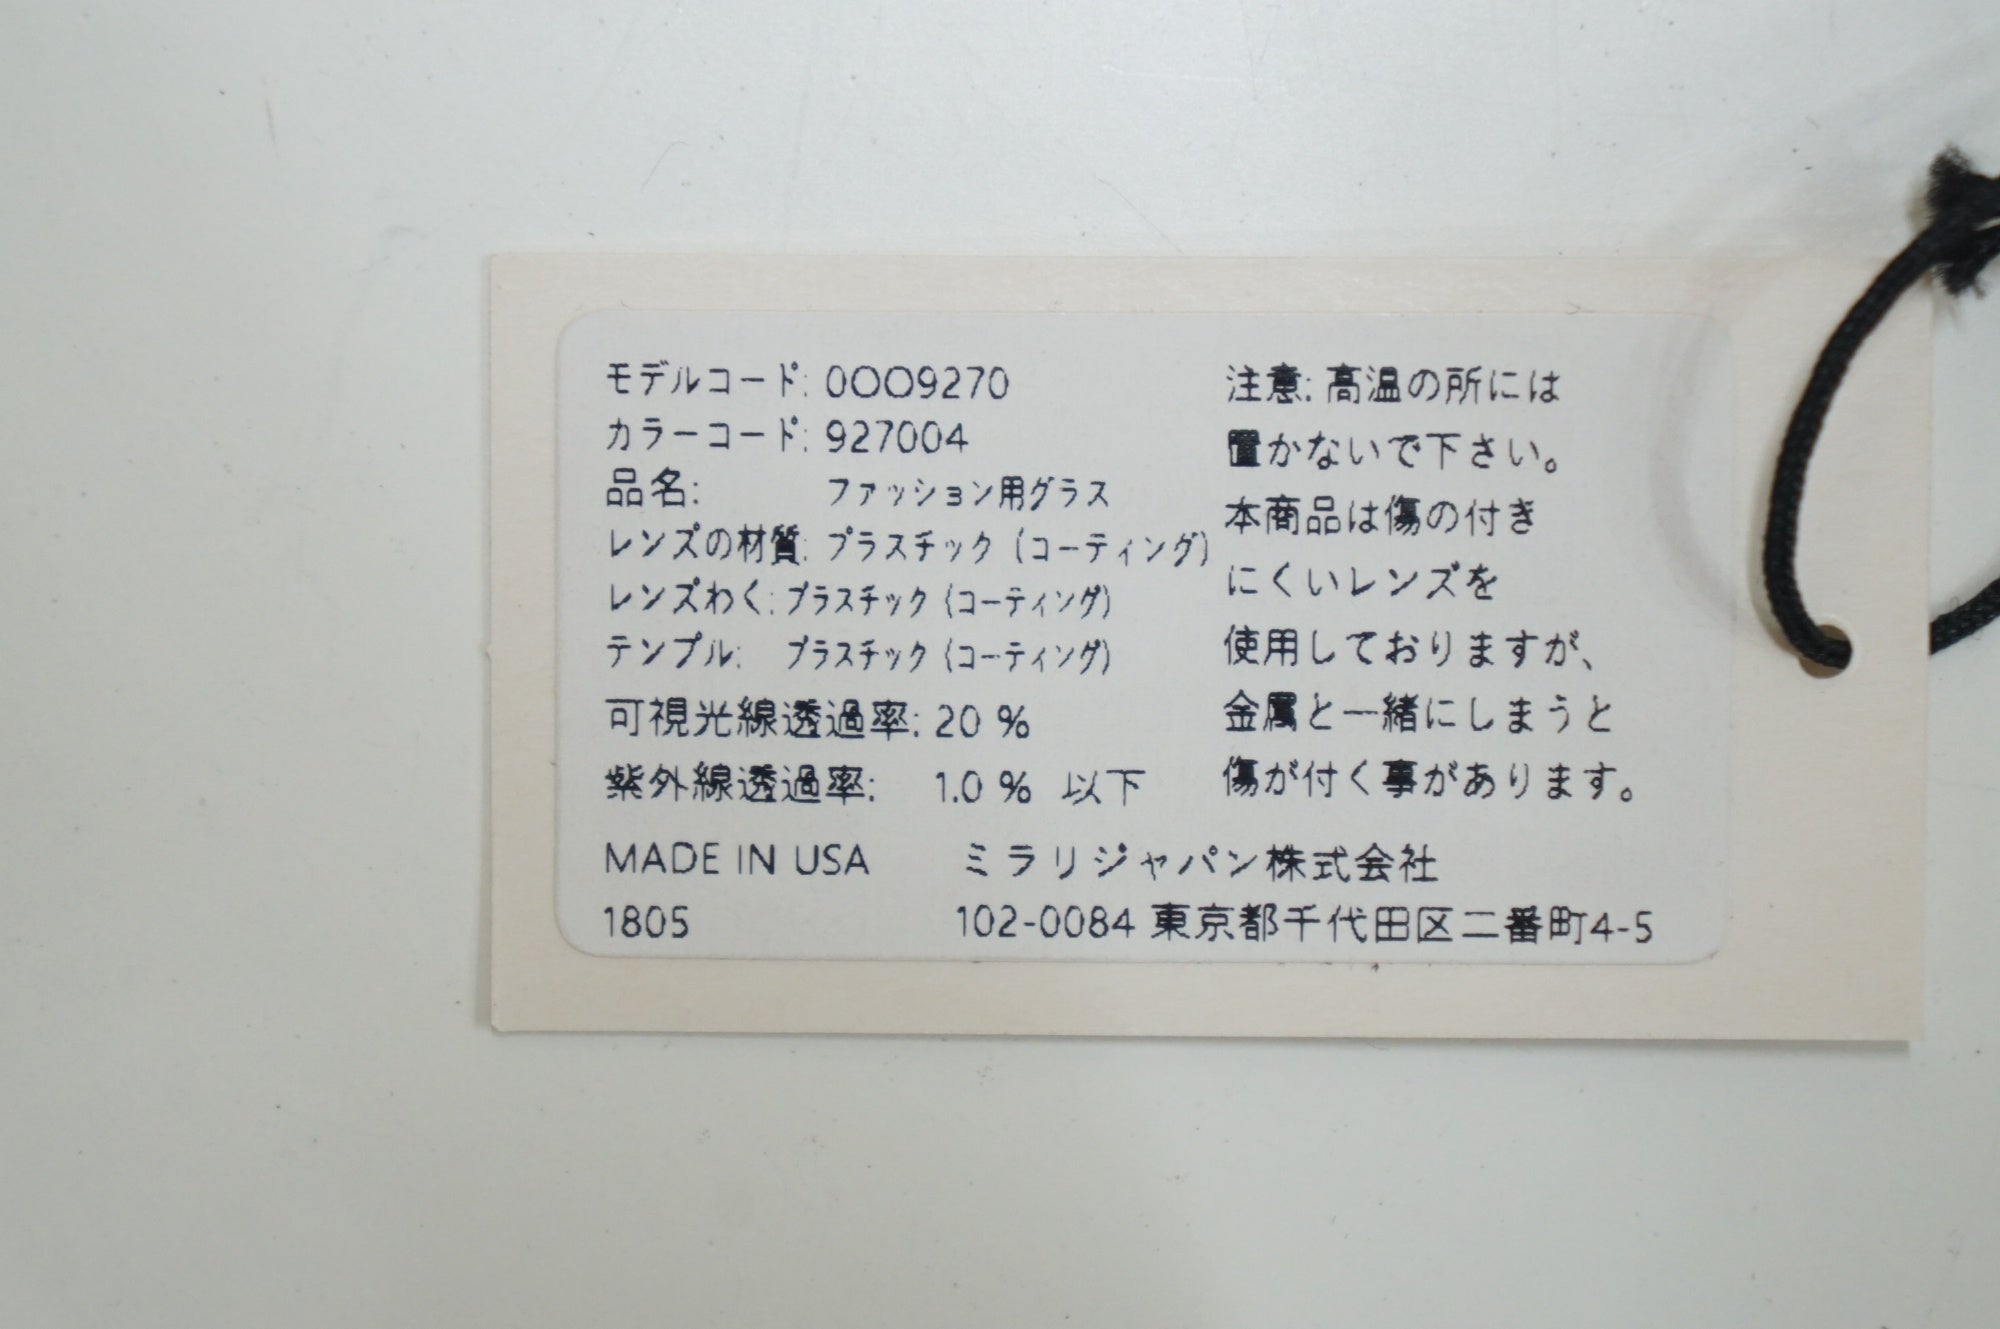 モデルコード: 0OO9270
カラーコード: 927004
品名: ファッション用グラス
レンズの材質: プラスチック (コーティング)
レンズわく: プラスチック (コーティング)
テンプル: プラスチック (コーティング)
可視光線透過率: 20 %
紫外線透過率: 1.0 % 以下
MADE IN USA
1805
注意: 高温の所には
置かないで下さい。
本商品は傷の付き
にくいレンズを
使用しておりますが、
金属と一緒にしまうと
傷が付く事があります。
ミラリジャパン株式会社
102-0084 東京都千代田区二番町4-5